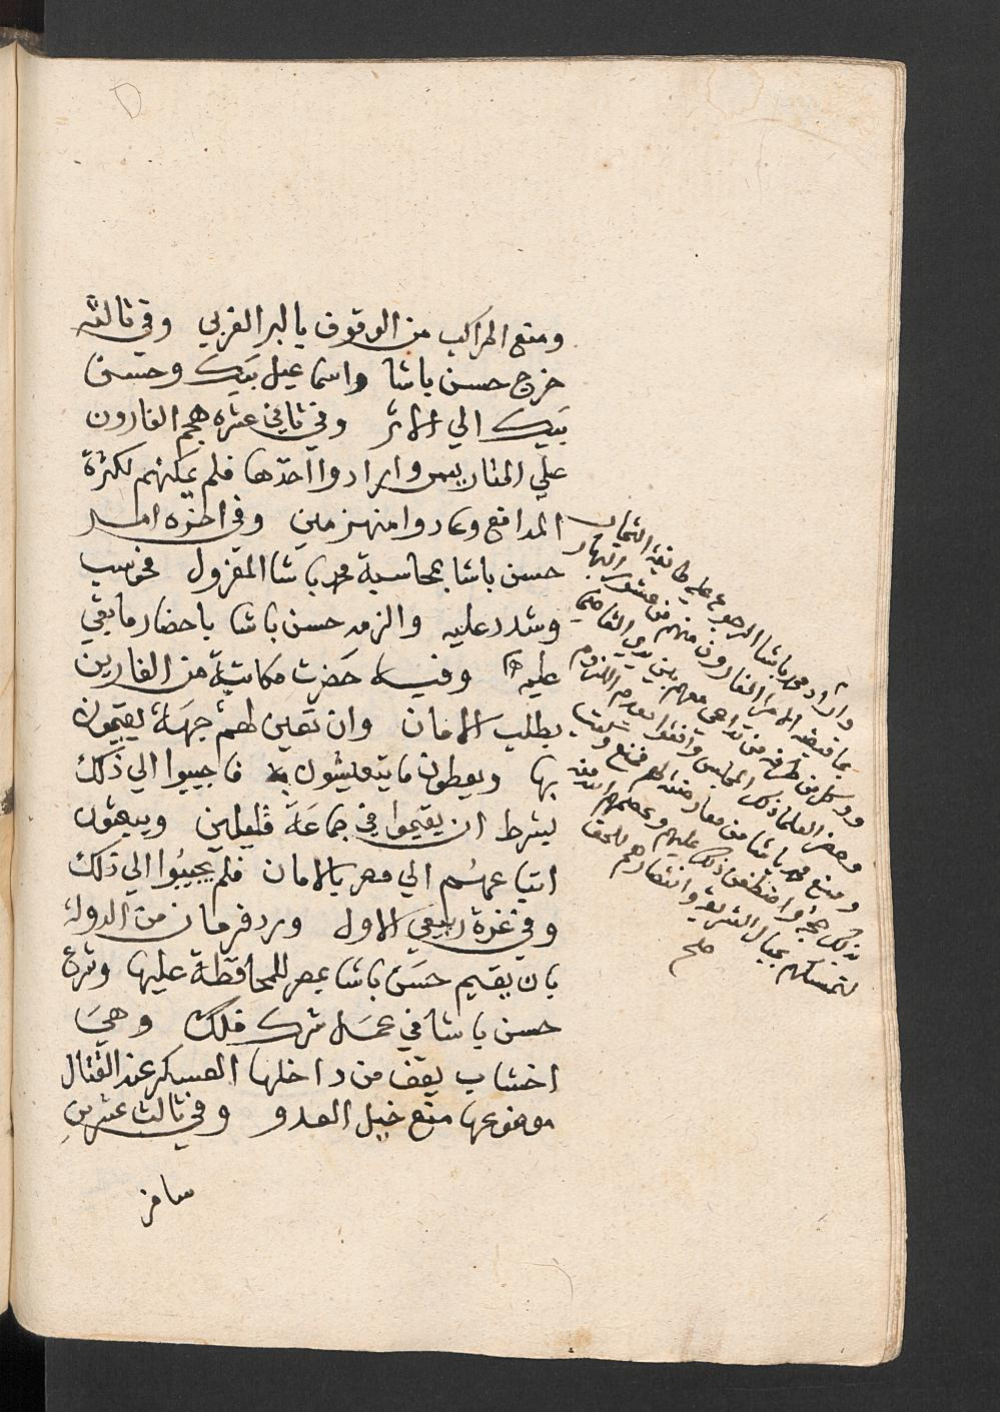 ومنع المراكب من الوقوف بالبر الغربي وفي ثالثه
خرج حسن باشا واسماعيل بيك وحسن
بيك الي الاثر وفي ثاني عشره هجم الفارون
علي المتاريس وارادوا اخذها فلم يمكنهم لكثرة
المدافع وعادوا منهزمين وفي اخره امر
حسن باشا بمحاسبة محمد باشا المعزول فحوسب
وشدد عليه والزمه حسن باشا باحضار ما بقي
عليه وفيه حضرت مكاتبة من الفارين
بطلب الامان وان تعين لهم جهة يقيمون
بها ويعطون ما يتعيشون به فاجيبوا الي ذلك
بشرط ان يقيموا في جماعة قليلين ويبعثون
اتباعهم الي مصر بالامان فلم يجيبوا الي ذلك
وفي غزة ربيع الاول ورد فرمان من الدولة
بان يقيم حسن باشا بمصر للمحافظة عليها وشرع
حسن باشا في عمل شرك فلك وهي
اخشاب يقف من داخلها العسكر عند القتال
موضوعها منع خيل العدو وفي ثالث عشرين
سافر
واراد محمد باشا الرجوع علي طايفة التجار
بما قبضه الامرا الفارون منهم من عشور البهار
ووكل من طرفه من تداعي معهم بين يدي القاضي
وحضر العلما ذلك المجلس وافتوا بعدم اللزوم
ومنع محمد باشا من معارضته لهم فمنع وكتب
بذلك حجة
لتمسكهم بحبال الشريعة وانتصارهم للحق
صح